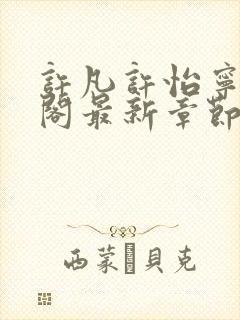 許凡許怡寧
閣最新章節
西蒙�貝克